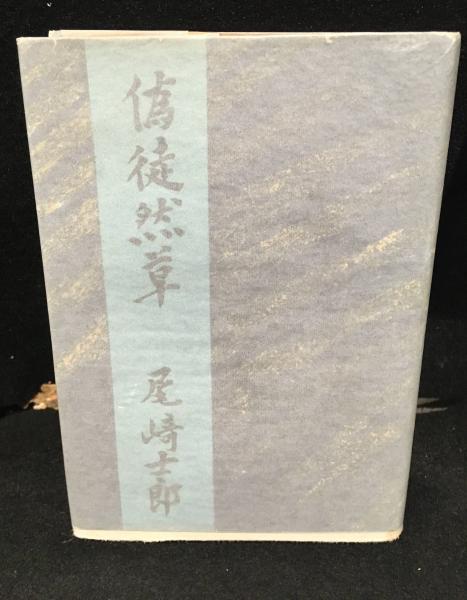 偽徒然草
尾崎士郎